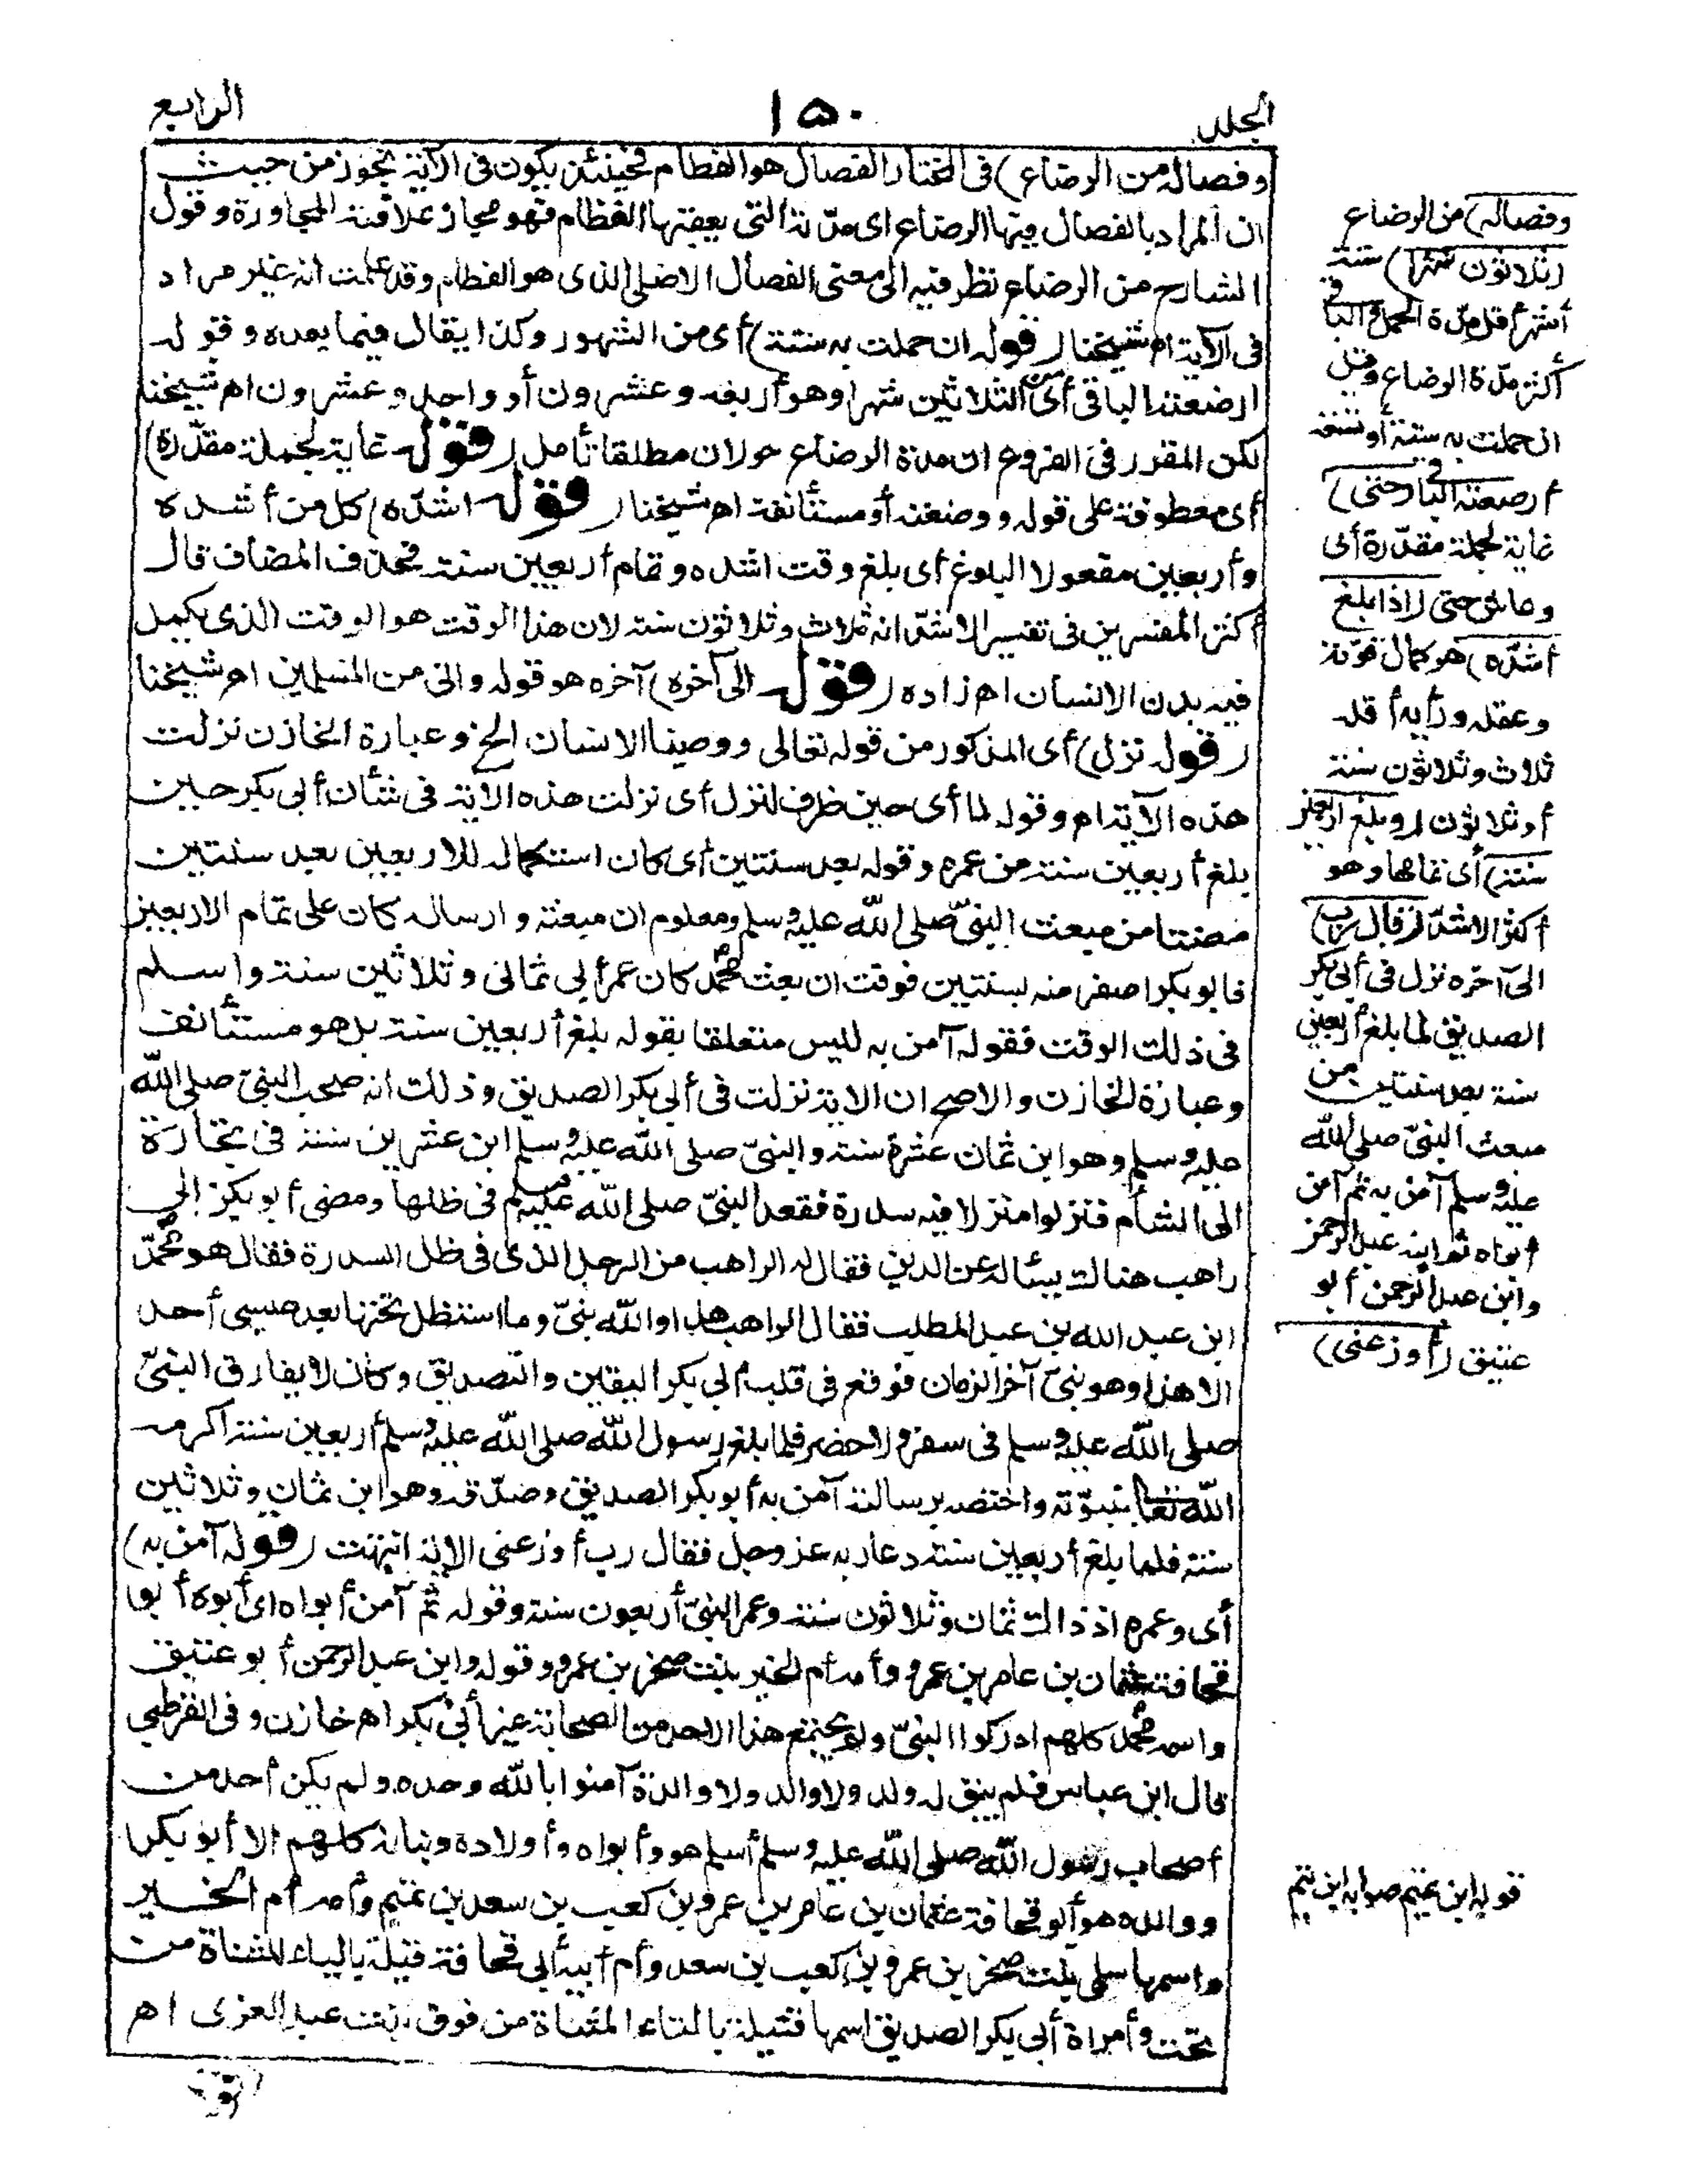 الجلد
١٥٠
الرابع
وفصاله من الرضاع) فى المختار الفصال هو الفطام فحينئذ يكون فى الآية تجوز من حيث
ان المراد بالفصال فيها الرضاع اى مدّته التى يعقبها الفطام فهو مجاز علاقته المجاورة وقول
الشارح من الرضاع نظر فيه الى معنى الفصال الاصلى الذى هو الفطام وقد علمت انه غير مراد
فى الآية اه شيخنا (قوله ان حملت به ستة) أى من الشهور وكذا يقال فيما بعده وقوله
ارضعته الباقى أى من الثلاثين شهرا وهو أربعه وعشرون أو واحد وعشرون اه شيخنا
لكن المقرر فى الفروع ان مدة الرضاع حولان مطلقا تأمل (قوله غاية لجملة مقدّرة)
أى معطوفة على قوله ووضعته أو مستأنفة اه شيخنا (قوله اشدّه) كل من أشده
وأربعين مفعولا البلوغ أى بلغ وقت اشده وتمام أربعين سنة فحذف المضاف قال
أكثر المفسرين فى تفسير الاشدّ انه ثلاث وثلاثون سنة لان هذا الوقت هو الوقت الذى يكمل
فيه بدن الانسان اه زاده (قوله الى آخره) آخره هو قوله وانى من المسلمين اه شيخنا
(قوله نزل) أى المذكور من قوله تعالى ووصينا الانسان الخ وعبارة الخازن نزلت
هذه الآية اه وقوله لما أى حين ظرف لنزل أى نزلت هذه الاية فى شأن أبى بكر حين
بلغ أربعين سنة من عمره وقوله بعد سنتين أى كان استكماله للاربعين بعد سنتين
مضتا من مبعث النبىّ صلى الله عليه وسلم ومعلوم ان مبعثه وارساله كان على تمام الاربعين
فابو بكر اصغر منه بسنتين فوقت ان بعث محمد كان عمر أبى ثمانى وثلاثين سنة واسلم
فى ذلك الوقت فقوله آمن به ليس متعلقا بقوله بلغ أربعين سنة بل هو مستأنف
وعبارة الخازن والاصح ان الاية نزلت فى أبى بكر الصديق وذلك انه صحب النبىّ صلى الله
عليه وسلم وهو ابن ثمان عشرة سنة والنبىّ صلى الله عليه وسلم ابن عشرين سنة فى تجارة
الى الشأم فنزلوا منزلا فيه سدرة فقعد النبىّ صلى الله عليه وسلم فى ظلها ومضى أبو بكر الى
راهب هنالك يسأله عن الدين فقال له الراهب من الرجل الذى فى ظل السدرة فقال هو محمّد
ابن عبد الله بن عبد المطلب فقال الراهب هذا والله نبىّ وما استظل تحتها بعد عيسى أحد
الا هذا وهو نبىّ آخر الزمان فوقع فى قلب أبى بكر اليقين والتصديق وكان لا يفارق النبىّ
صلى الله عليه وسلم فى سفر ولا حضر فلما بلغ رسول الله صلى الله عليه وسلم أربعين سنة اكرمه
الله تعالى بنبوّته واختصه برسالته آمن به أبو بكر الصديق وصدّقه وهو ابن ثمان وثلاثين
سنة فلما بلغ أربعين سنة دعا ربه عز وجل فقال رب أوزعنى الاية انتهت (قوله آمن به)
أى وعمره اذ ذاك ثمان وثلاثون سنة وعمر النبىّ أربعون سنة وقوله ثم آمن أبواه اى أبوه أبو
قحافة عثمان بن عامر بن عمرو وأمه أم الخير بنت صخر بن عمرو وقوله وابن عبد الرحمن أبو عتيق
واسمه محمد كلهم ادركوا النبىّ ولم يجتمع هذا الاحد من الصحابة غير أبى بكر اه خازن وفى القرطبى
قال ابن عباس فلم يبق له ولد ولا والد ولا والدة آمنوا بالله وحده ولم يكن أحد من
أصحاب رسول الله صلى الله عليه وسلم أسلم هو وأبواه وأولاده وبناته كلهم الا أبو بكر
ووالده هو أبو قحافة عثمان بن عامر بن عمرو بن كعب بن سعد بن تميم وأمه أم الخير
واسمها سلمى بنت صخر بن عمرو بن كعب بن سعد وأم أبيه أبى قحافة قيلة بالياء المثناة من
تحت وأمراة أبى بكر الصديق اسمها قتيلة بالتاء المثناة من فوق بنت عبد العزى اه
وفصاله) من الرضاع
(ثلاثون شهرا) ستة
أشهر أقل مدّة الحمل والباقى
أكثر مدّة الرضاع وقيل
ان حملت به ستة أو تسعة
أرضعته الباقى (حتى)
غاية لجملة مقدّرة أى
وعاش حتى (اذا بلغ
أشدّه) هو كمال قوّته
وعقله ورأيه أقله
ثلاث وثلاثون سنة
أو ثلاثون (وبلغ أربعين
سنة) أى تمامها وهو
أكثر الاشدّ (قال رب)
الى آخره نزل فى أبى بكر
الصديق لما بلغ أربعين
سنة بعد سنتين من
مبعث النبىّ صلى الله
عليه وسلم آمن به ثم آمن
أبواه ثم ابنه عبد الرحمن
وابن عبد الرحمن أبو
عتيق (أوزعنى)
قوله ابن تميم صوابه ابن تيم